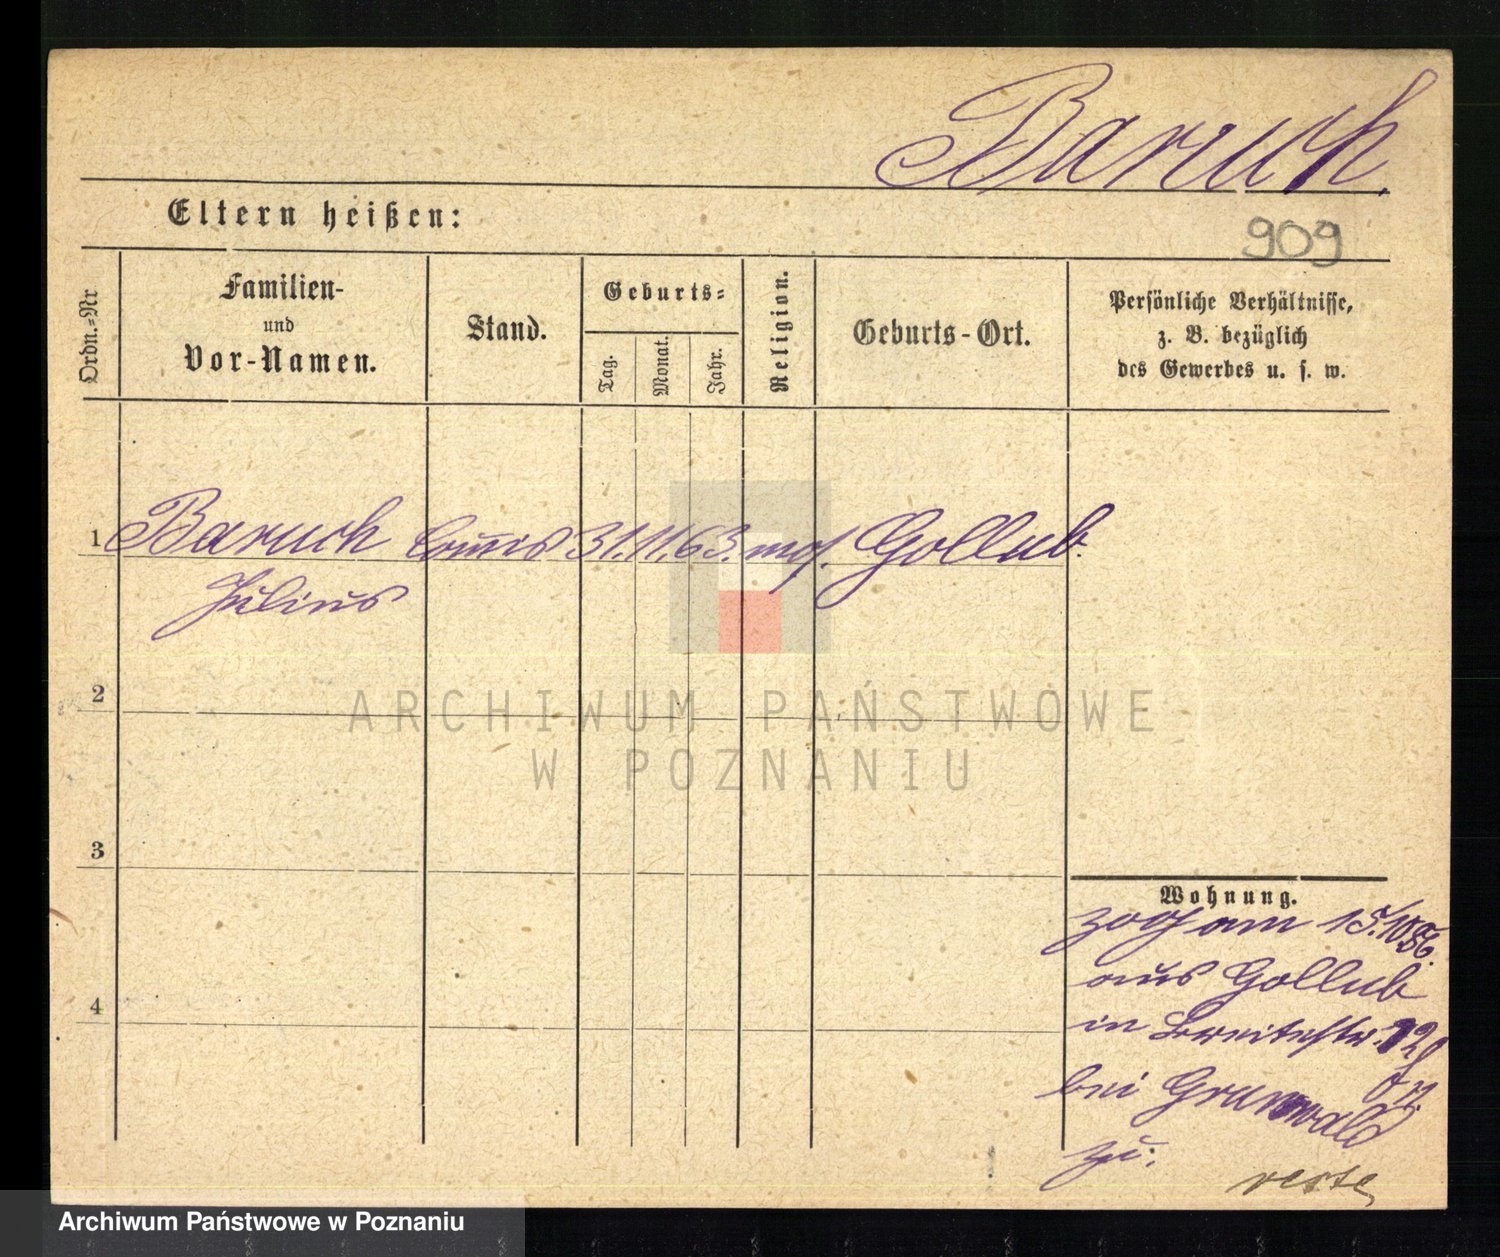 Baruch
Eltern heißen:
909
Ordn.=Nr
Familien-
und
Vor-Namen.
Stand.
Geburts=
Tag.
Monat.
Jahr.
Religion.
Geburts-Ort.
Persönliche Verhältnisse,
z. B. bezüglich
des Gewerbes u. s. w.
1 Baruch 31.11.63. mos. Gollub.
Julius
2
ARCHIWUM PAŃSTWOWE
W POZNANIU
3
Wohnung.
zog am 15./10 86.
aus Gollub
in Breitestr.
bei Grunwald
zu.
4
Archiwum Państwowe w Poznaniu